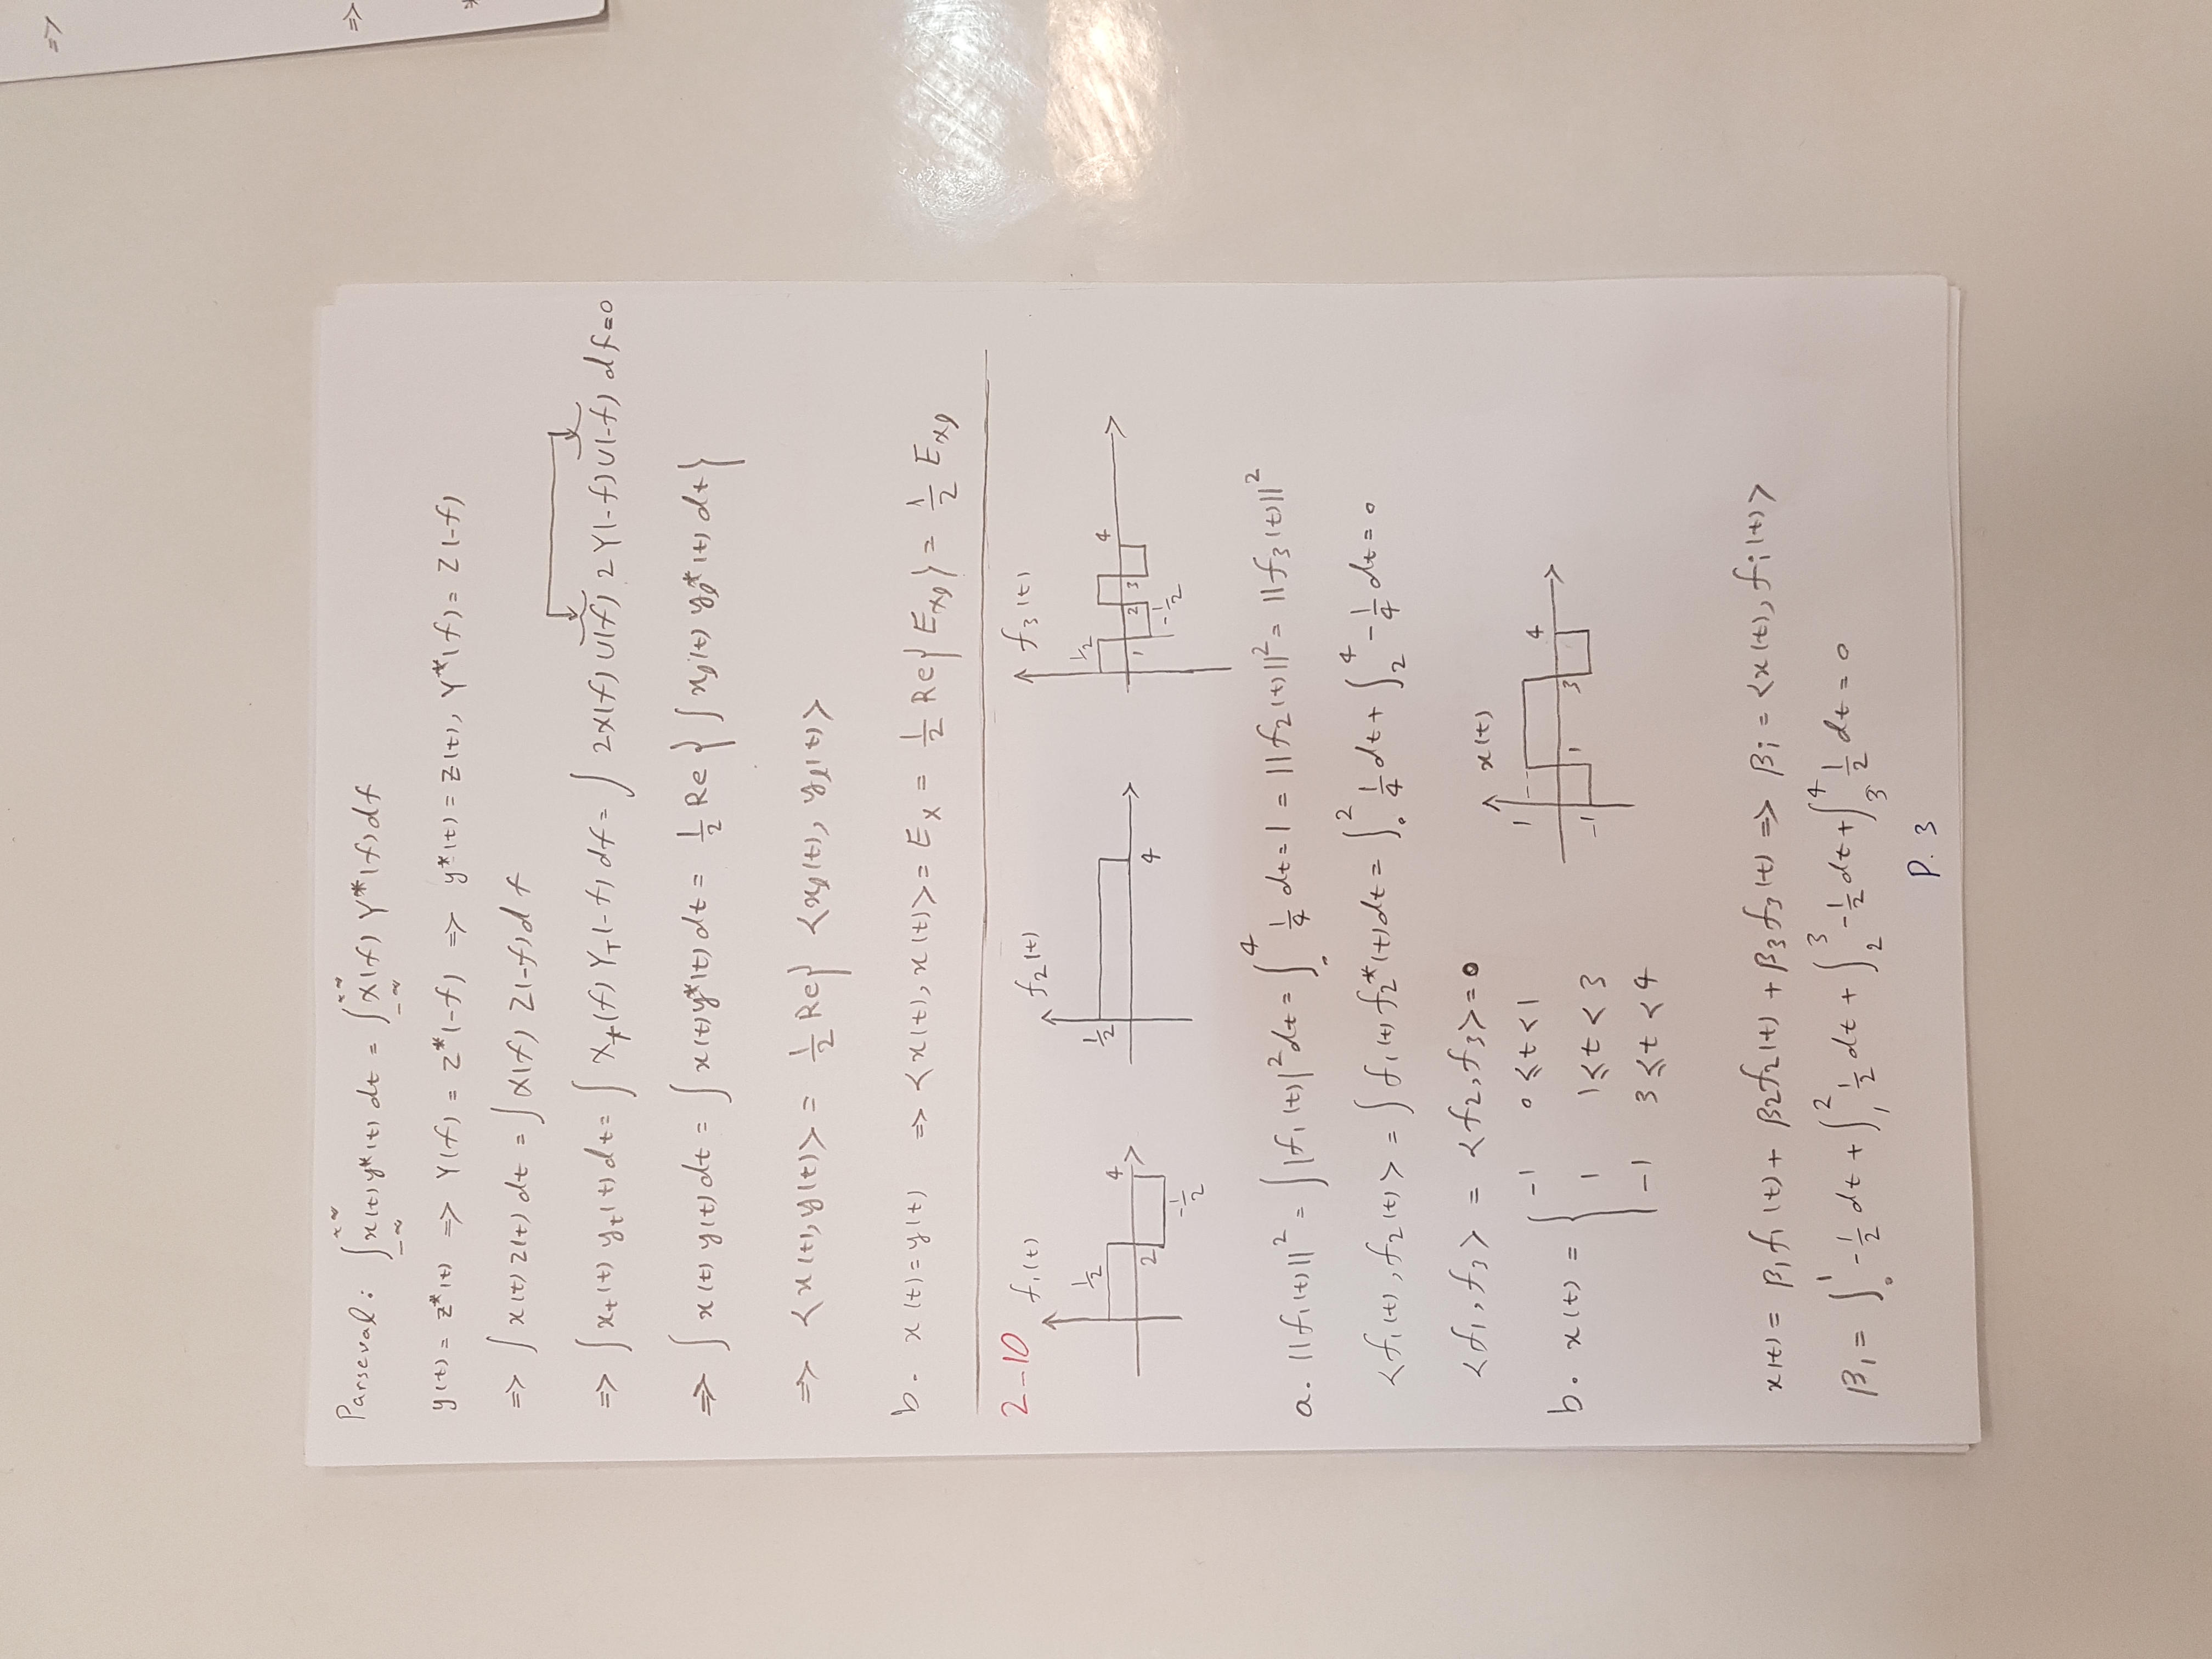 Parseval: ∫_{-∞}^{+∞} x(t) y*(t) dt = ∫_{-∞}^{+∞} X(f) Y*(f) df
y(t) = z*(t) => Y(f) = Z*(-f) => y*(t) = Z(t), Y*(f) = Z(-f)
=> ∫ x(t) z(t) dt = ∫ X(f) Z(-f) df
=> ∫ x₊(t) y₊(t) dt = ∫ X₊(f) Y₊(-f) df = ∫ 2X(f) U(f) 2Y(-f) U(-f) df = 0
=> ∫ x(t) y(t) dt = ∫ x(t) y*(t) dt = 1/2 Re { ∫ x_l(t) y_l*(t) dt }
=> <x(t), y(t)> = 1/2 Re} <x_l(t), y_l(t)>
b. x(t) = y(t) => <x(t), x(t)> = E_x = 1/2 Re{ E_{x_l} } = 1/2 E_{x_l}
2-10 f₁(t) f₂(t) f₃(t)
1/2 2 4 -1/2
1/2 4
1/2 1 2 3 4 -1/2
a. ||f₁(t)||² = ∫ |f₁(t)|² dt = ∫_0^4 1/4 dt = 1 = ||f₂(t)||² = ||f₃(t)||²
<f₁(t), f₂(t)> = ∫ f₁(t) f₂*(t) dt = ∫_0^2 1/4 dt + ∫_2^4 -1/4 dt = 0
<f₁, f₃> = <f₂, f₃> = 0
b. x(t) = { -1 0 ≤ t < 1
1 1 ≤ t < 3
-1 3 ≤ t < 4
x(t)
1 -1 1 3 4
x(t) = β₁ f₁(t) + β₂ f₂(t) + β₃ f₃(t) => βᵢ = <x(t), fᵢ(t)>
β₁ = ∫_0^1 -1/2 dt + ∫_1^2 1/2 dt + ∫_2^3 -1/2 dt + ∫_3^4 1/2 dt = 0
P. 3
=>
=>
*